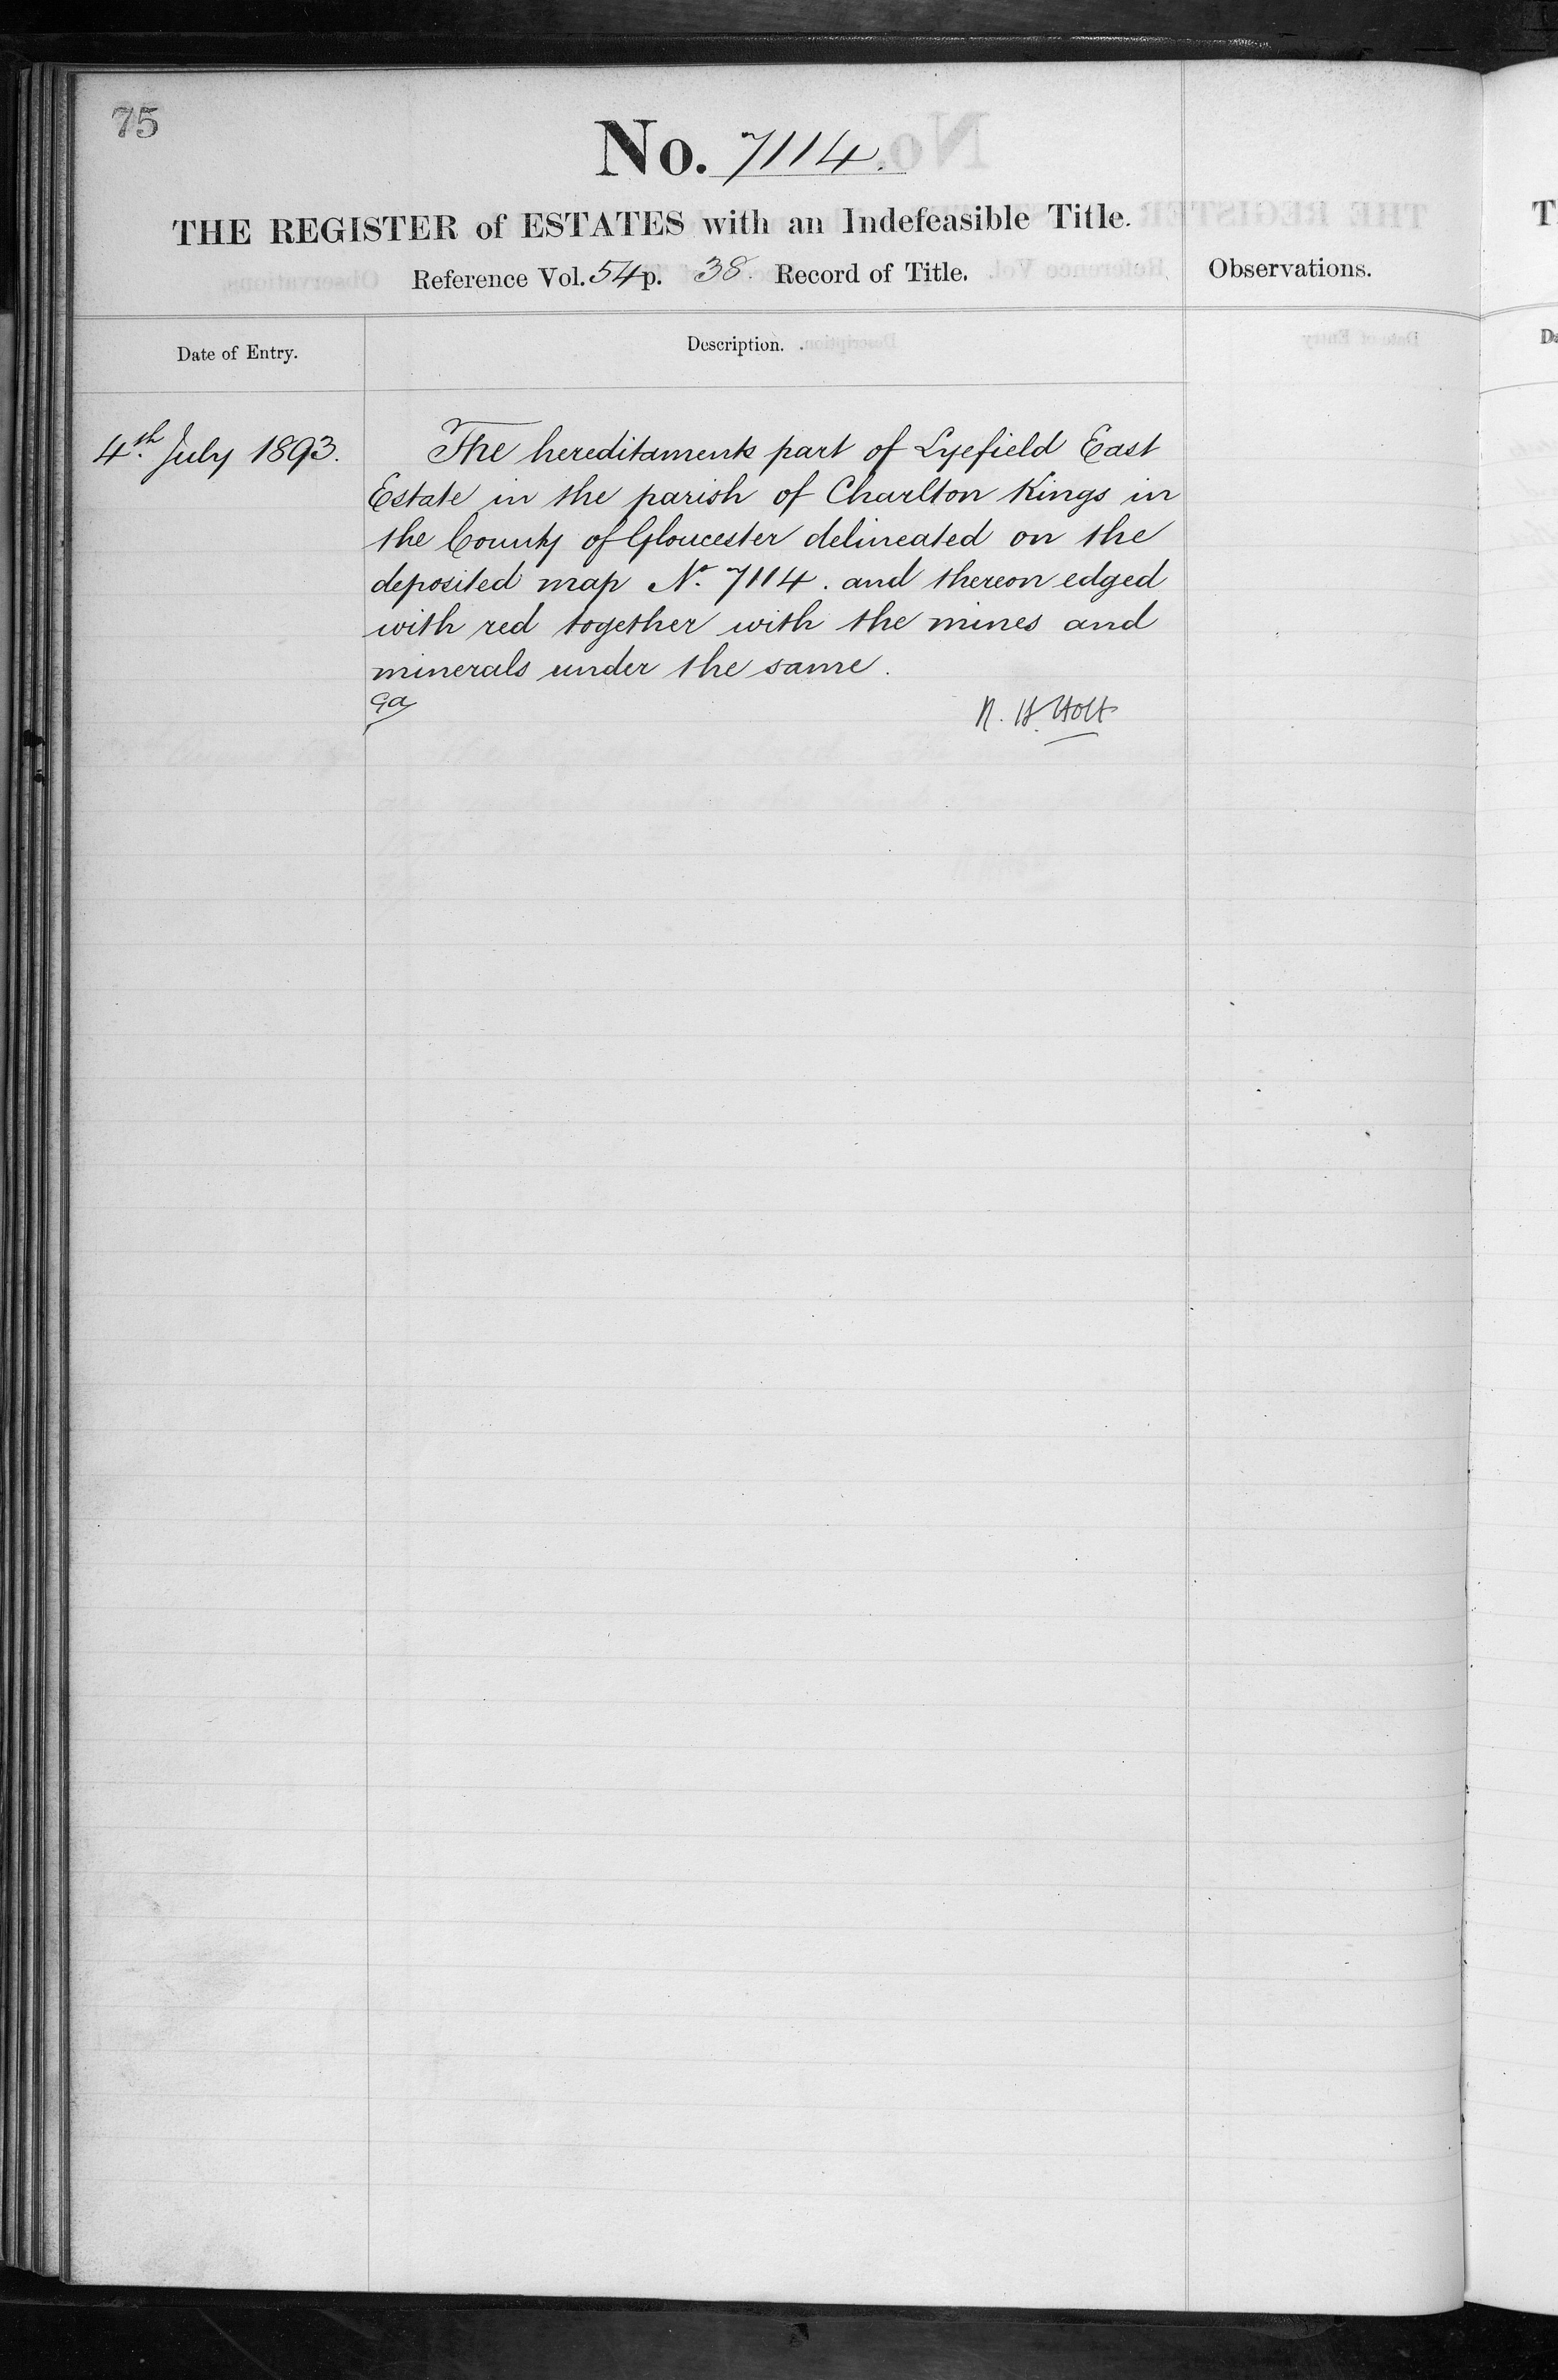 75
No. 7114.
THE REGISTER of ESTATES with an Indefeasible Title.
Reference Vol. 54 p. 38. Record of Title.
Observations.
Date of Entry.
Description.
4th July 1893.
The hereditaments part of Lyefield East
Estate in the parish of Charlton Kings in
the County of Gloucester delineated on the
deposited map No. 7114. and thereon edged
with red together with the mines and
minerals under the same.
R. H. Holt